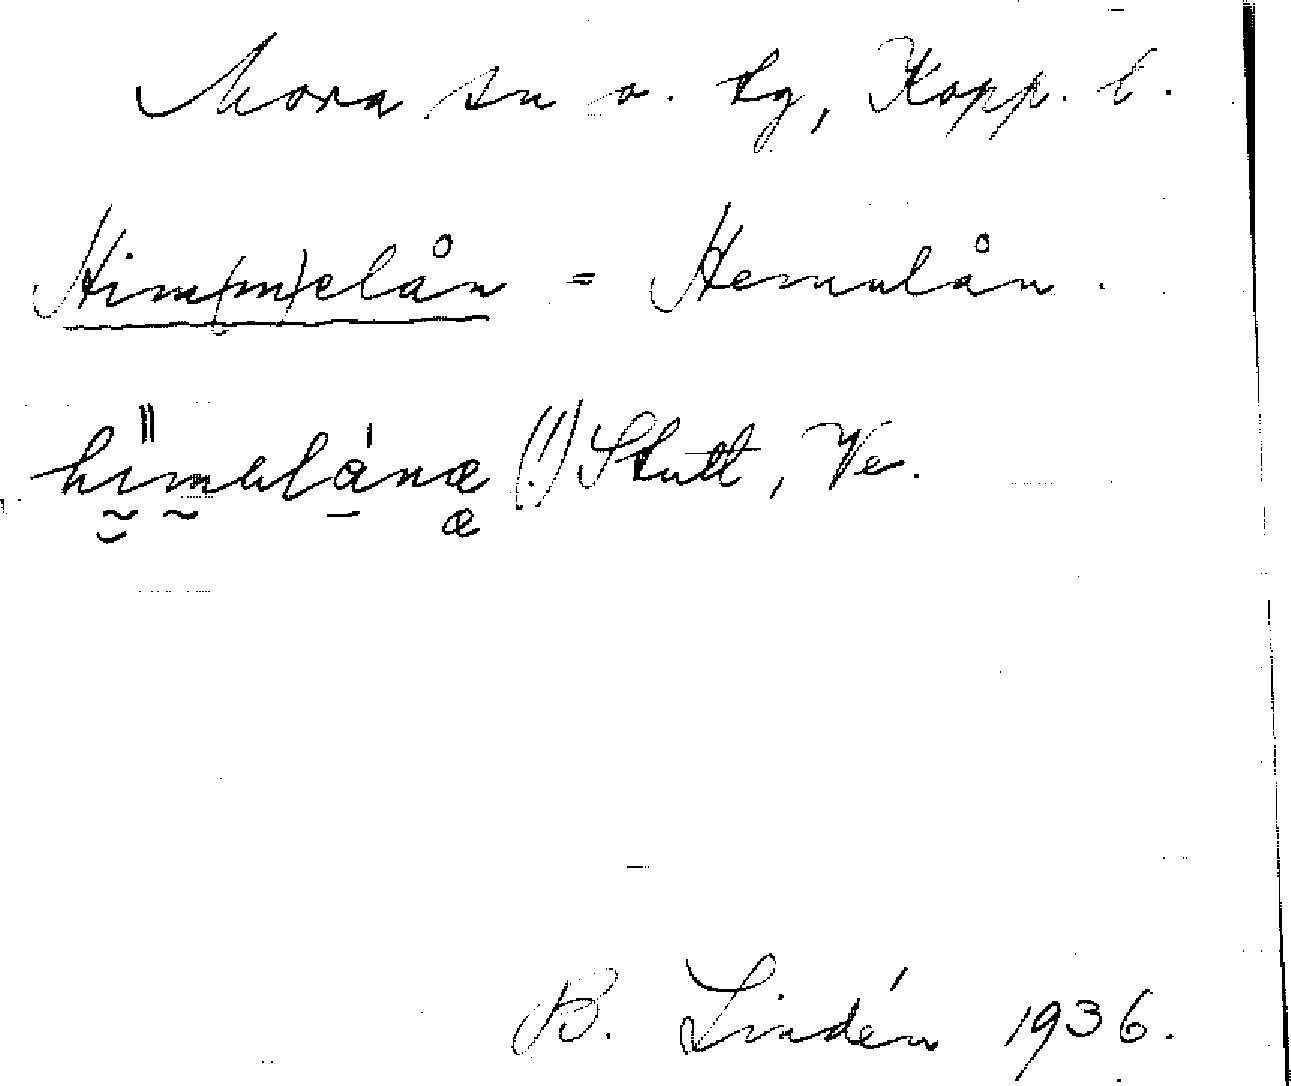 Mora sn o. tg, Kopp. l.
Him(m)elån = Hemulån.
(!) Stutt, Ve.
B. Lindén 1936.